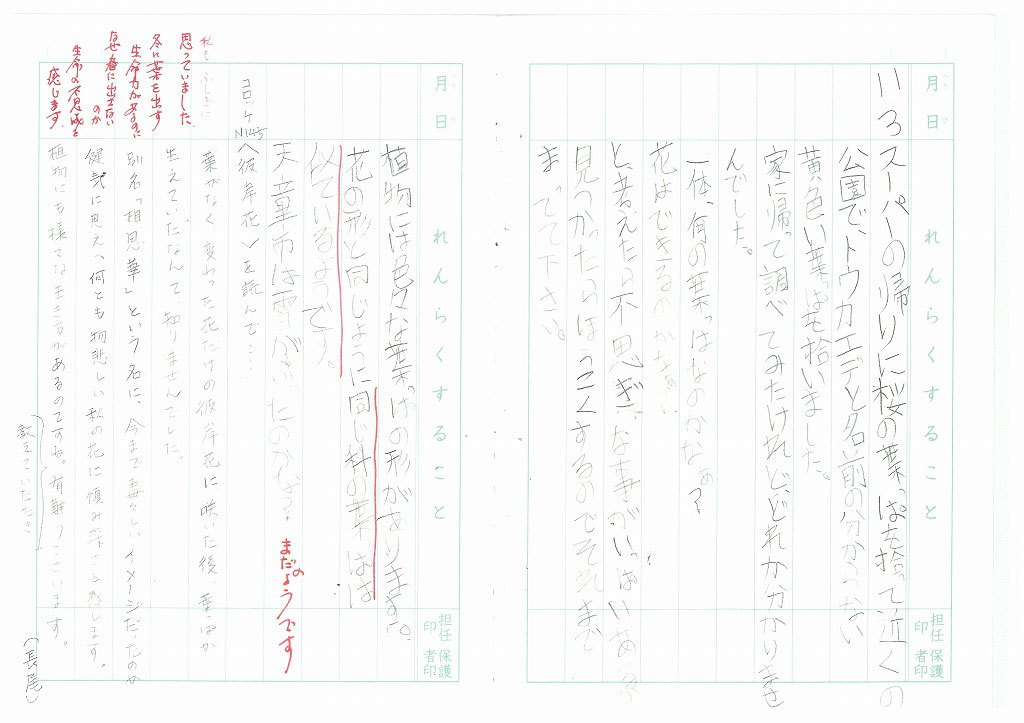 月 日 れんらくすること 担任印 保護者印
11/3 スーパーの帰りに桜の葉っぱを拾って近くの
公園で、トウカエデと名前の分からない
黄色い葉っぱを拾いました。
家に帰って調べてみたけれど、どれか分かりませ
んでした。
一体、何の葉っぱなのかなぁ?
花はできるのかなぁ?
と、考えたら不思ぎな事がいっぱいある
見つかったらほうこくするのでそれまで
まってて下さい。
月 日 れんらくすること 担任印 保護者印
植物には色々な葉っぱの形があります。
花の形と同じように同じ科の葉はは
似ているようです。
天童市は雪がふったのかな?
まだのようです
コロッケNo.45へ彼岸花>を読んで‥‥
葉がなく変わった花だけの彼岸花に咲いた後、葉っぱが
生えていたなんて知りませんでした。
別名「相思華」という名に、今まで毒々しいイメージだったのが
健気に思え、何とも物悲しい秋の花に慎み深さを感じます。
植物にも様々な生き方があるのですね。有難うございます。
教えていただき
(長尾)
私もふしぎに
思っていました
冬に葉を出す
生命力があるのに
なぜ春に出さない
のか
生命の不思議を
感じます。